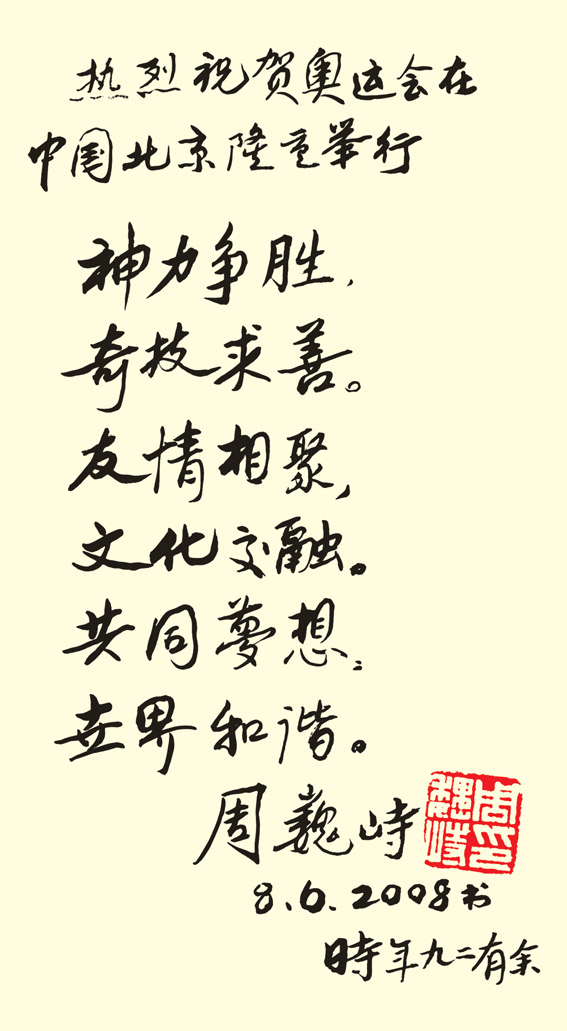 热烈祝贺奥运会在
中国北京隆重举行
神力争胜,
奇技求善。
友情相聚,
文化交融。
共同夢想:
世界和谐。
周巍峙
周巍峙印
8.6.2008书
時年九二有余